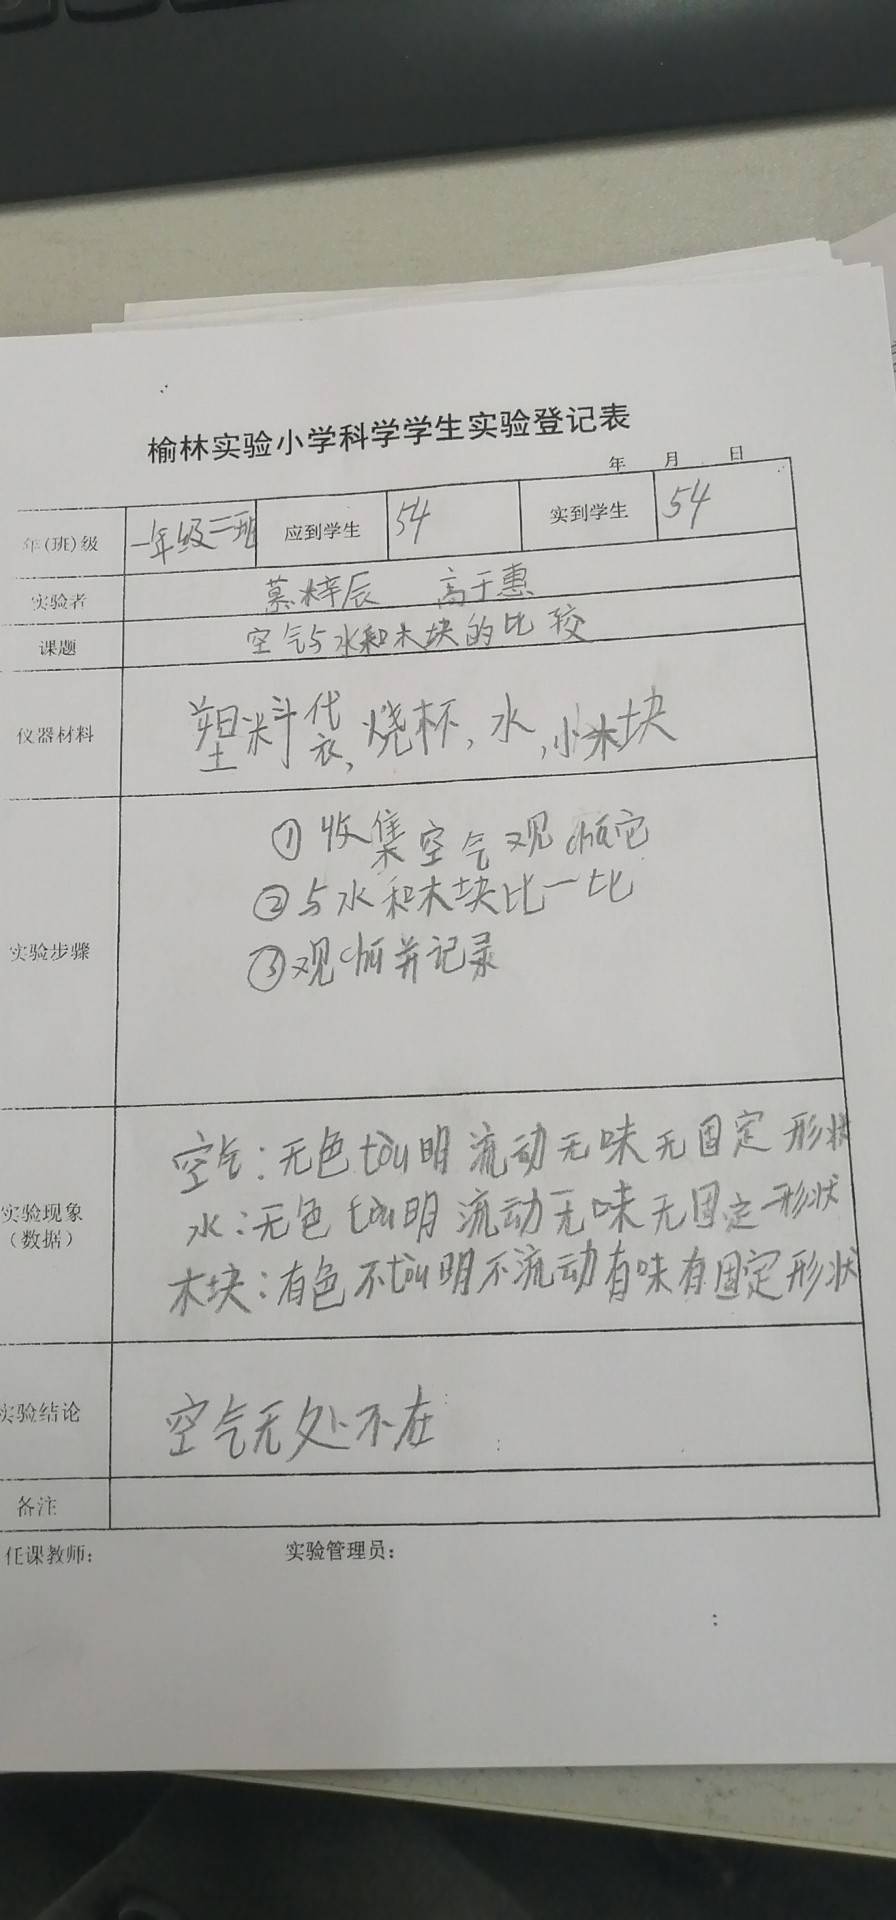 榆林实验小学科学学生实验登记表
年 月 日
年(班)级 一年级二班 应到学生 54 实到学生 54
实验者 慕梓辰 高于惠
课题 空气与水和木块的比较
仪器材料 塑料袋,烧杯,水,小木块
①收集空气观cha它
②与水和木块比一比
实验步骤 ③观cha并记录
空气:无色tòu明流动无味无固定形状
实验现象(数据) 水:无色tòu明流动无味无固定形状
木块:有色不tòu明不流动有味有固定形状
实验结论 空气无处不在
备注
任课教师: 实验管理员: